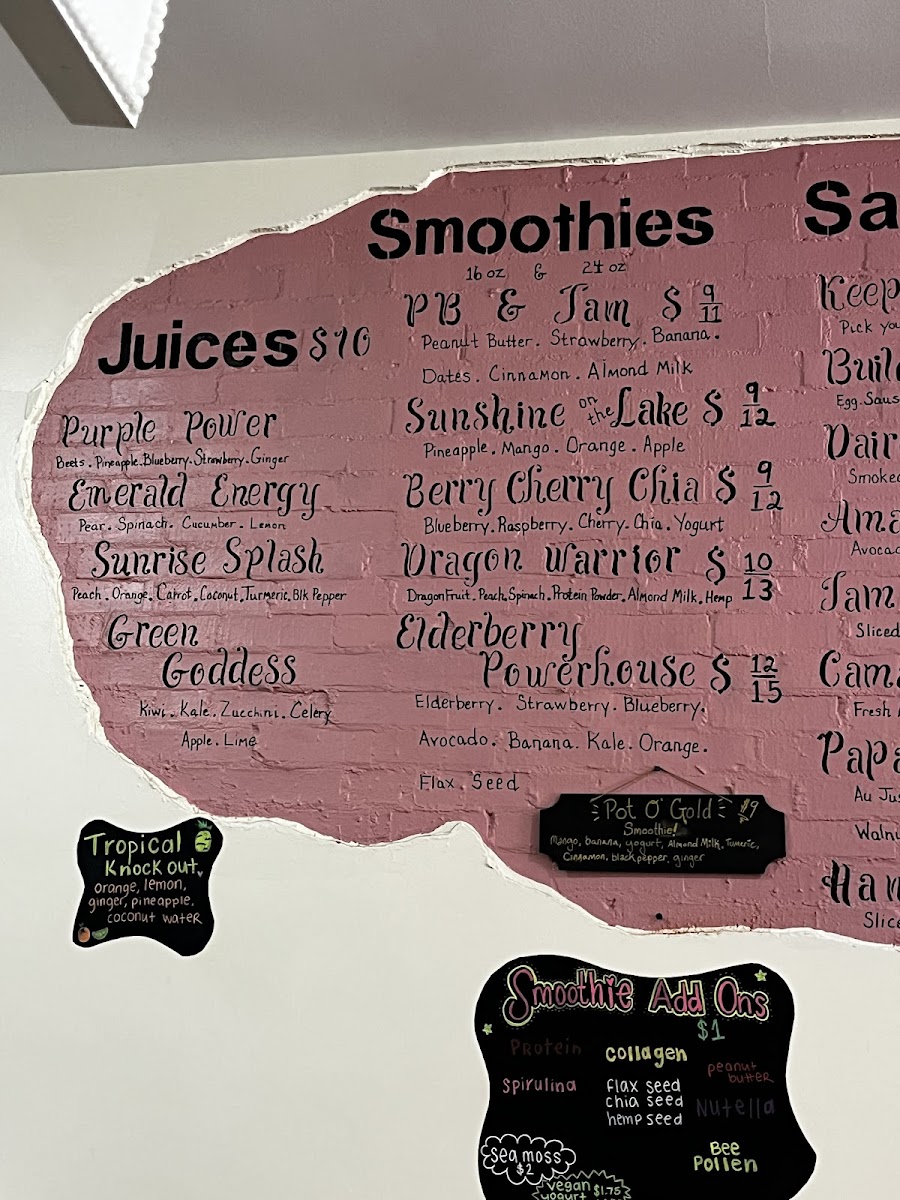 Juices $10
Purple Power
Beets. Pineapple. Blueberry. Strawberry. Ginger
Emerald Energy
Pear. Spinach. Cucumber. Lemon
Sunrise Splash
Peach. Orange. Carrot. Coconut. Turmeric. Blk Pepper
Green
Goddess
Kiwi. Kale. Zucchini. Celery
Apple. Lime
Smoothies
16 oz & 24 oz
PB & Jam $ 9/11
Peanut Butter. Strawberry. Banana.
Dates. Cinnamon. Almond Milk
Sunshine on the Lake $ 9/12
Pineapple. Mango. Orange. Apple
Berry Cherry Chia $ 9/12
Blueberry. Raspberry. Cherry. Chia. Yogurt
Dragon Warrior $ 10/13
DragonFruit. Peach. Spinach. Protein Powder. Almond Milk. Hemp
Elderberry
Powerhouse $ 12/15
Elderberry. Strawberry. Blueberry.
Avocado. Banana. Kale. Orange.
Flax. Seed
Sa
Keep
Pick yo
Buil
Egg. Saus
Dair
Smoked
Ama
Avocad
Jam
Sliced
Cam
Fresh
Papa
Au Jus
Walnu
Ham
Slice
Pot O' Gold $9
Smoothie!
Mango, banana, yogurt, Almond Milk, Tumeric,
Cinnamon, black pepper, ginger
Tropical
Knock out
orange, lemon,
ginger, pineapple,
coconut water
Smoothie Add Ons
$1
Protein
collagen
peanut
butter
Spirulina
flax seed
chia seed
hemp seed
Nutella
sea moss
$2
Bee
Pollen
vegan $1.75
yogurt